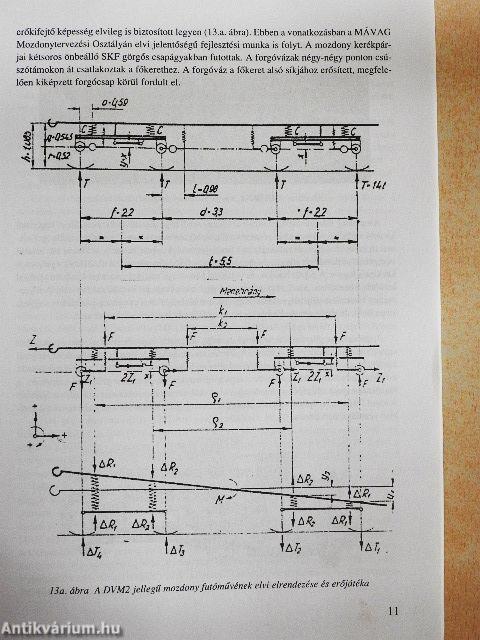 erőkifejtő képesség elvileg is biztosított legyen (13.a. ábra). Ebben a vonatkozásban a MÁVAG
Mozdonytervezési Osztályán elvi jelentőségű fejlesztési munka is folyt. A mozdony kerékpár-
jai kétsoros önbeálló SKF görgős csapágyakban futottak. A forgóvázak négy-négy ponton csú-
szótámokon át csatlakoztak a főkerethez. A forgóváz a főkeret alsó síkjához erősített, megfele-
lően kiképzett forgócsap körül fordult el.
C C C C
T T T T=14t
l=0,98
f=2,2 d=3,3 f=2,2
t=5,5
Menetirány
k₁
k₂
F F F F
Z
F Z₁ 2Z₁ F F Z₁ 2Z₁ F Z₁
ρ₁
ρ₂
ΔR₁ ΔR₂ ΔR₂ ΔR₁
M
ΔR₁ ΔR₂ ΔR₂ ΔR₁
ΔT₄ ΔT₃ ΔT₂ ΔT₁
13a. ábra A DVM2 jellegű mozdony futóművének elvi elrendezése és erőjátéka
11
Antikvárium.hu